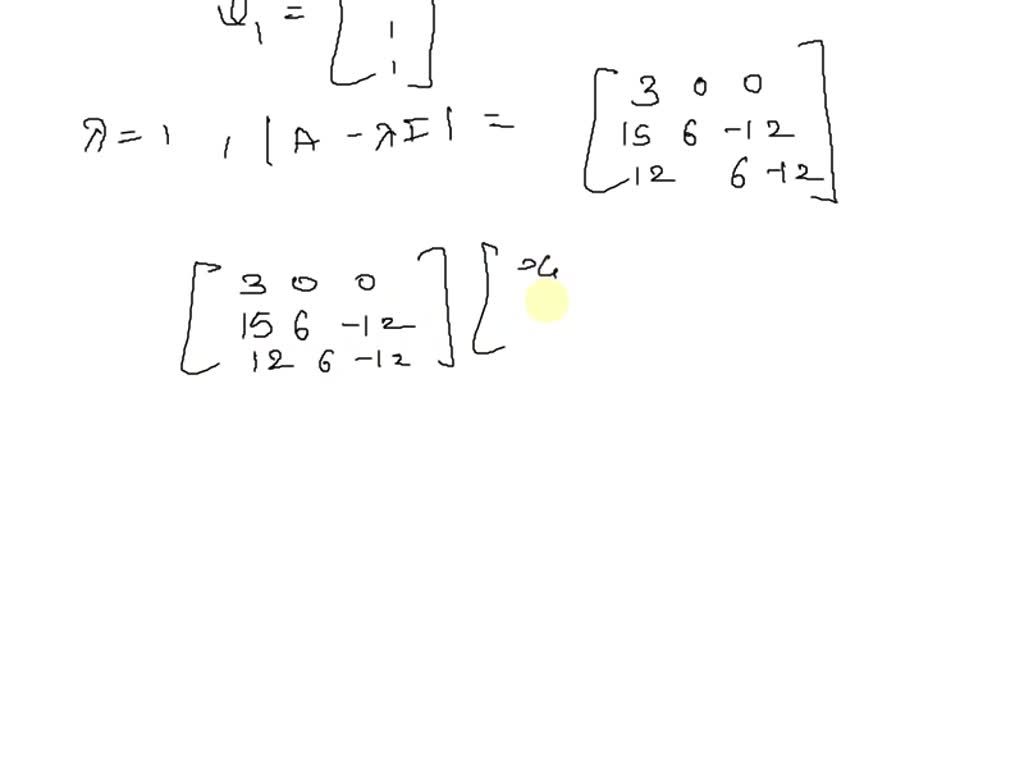 1
1
λ = 1 , | A - λI | = [ 3 0 0
15 6 -12
12 6 -12 ]
[ 3 0 0
15 6 -12
12 6 -12 ] [ x